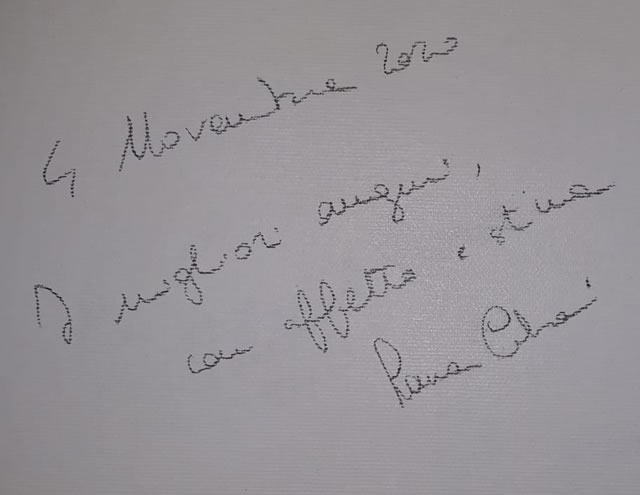 4 Novembre 2020
I migliori auguri,
con affetto e stima